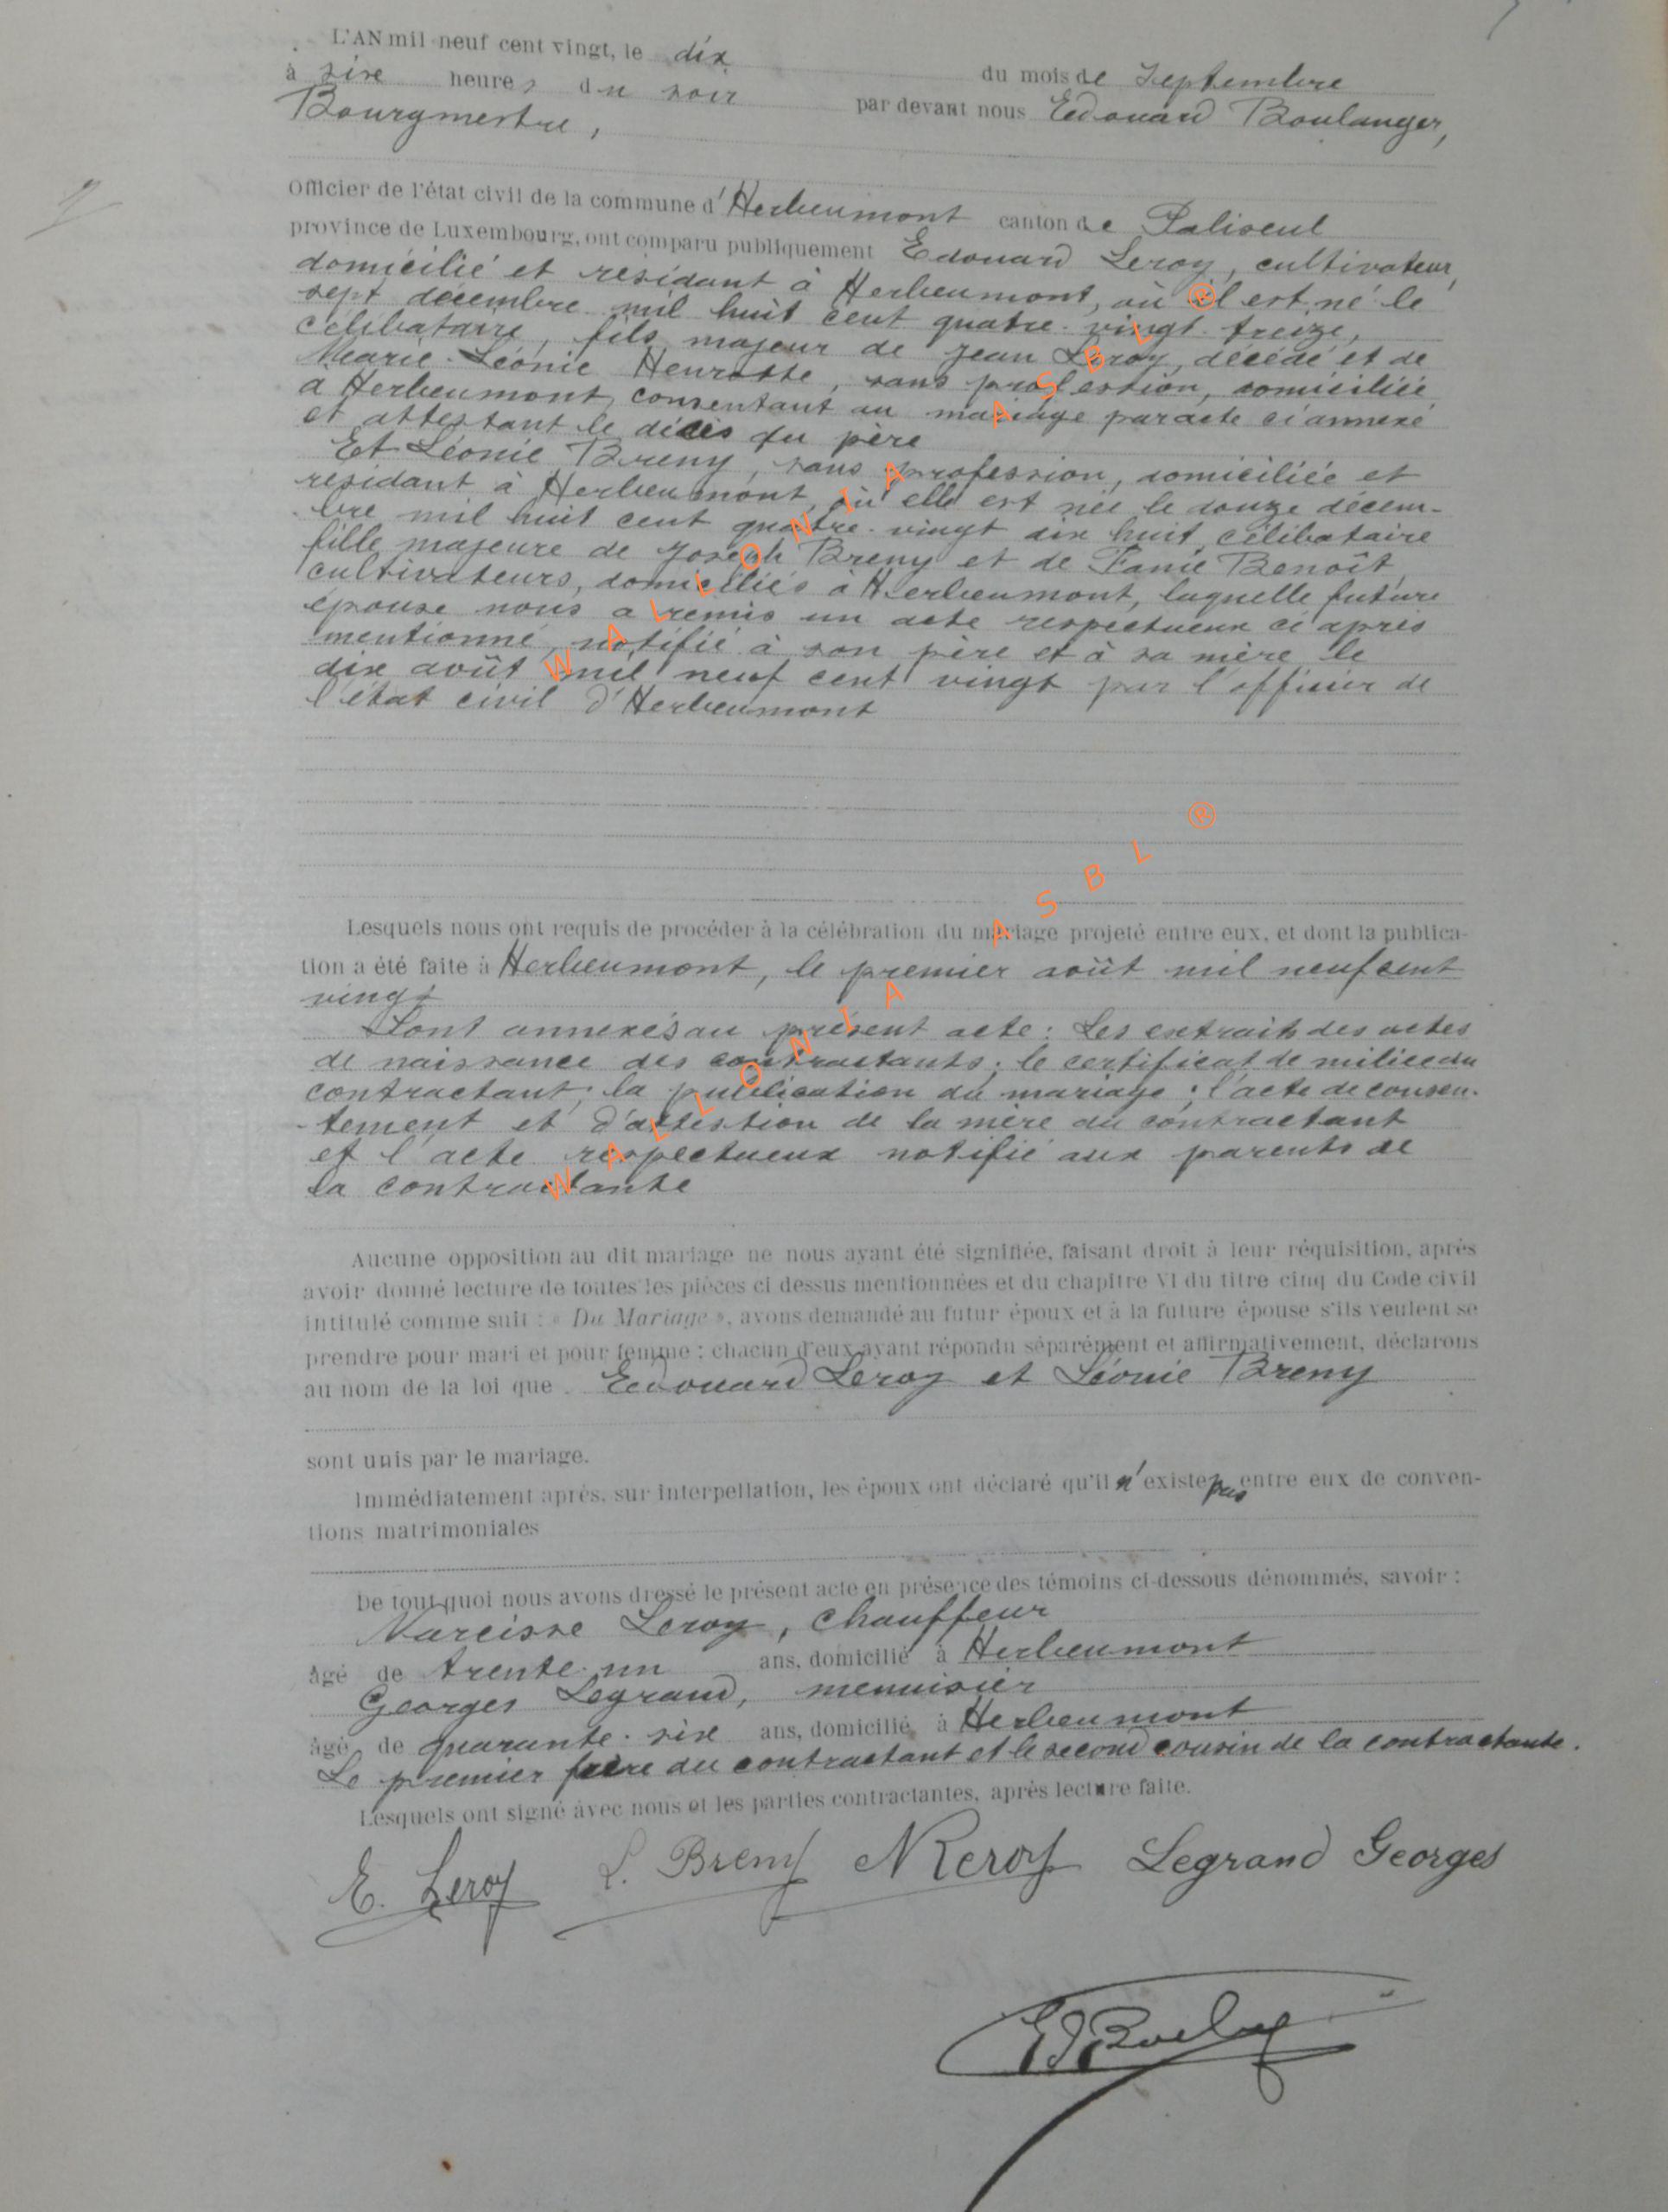 L'AN mil neuf cent vingt, le dix du mois de Septembre
à six heures du soir par devant nous Edouard Boulanger,
Bourgmestre,
Officier de l'état civil de la commune d'Herbeumont canton de Paliseul
province de Luxembourg, ont comparu publiquement Edouard Leroy, cultivateur,
domicilié et résidant à Herbeumont, où il est né le
sept décembre mil huit cent quatre-vingt-treize,
célibataire, fils majeur de Jean Leroy, décédé et de
Marie-Léonie Henrotte, sans profession, domiciliée
à Herbeumont, consentant au mariage par acte ci annexé
et attestant le décès du père
Et Léonie Breny, sans profession, domiciliée et
résidant à Herbeumont, où elle est née le douze décem-
bre mil huit cent quatre-vingt dix huit, célibataire
fille majeure de Joseph Breny et de Fanie Benoît,
cultivateurs, domiciliés à Herbeumont, laquelle future
épouse nous a remis un acte respectueux ci après
mentionné, notifié à son père et à sa mère le
dix août mil neuf cent vingt par l'officier de
l'état civil d'Herbeumont
WALLONIA ASBL ®
Lesquels nous ont requis de procéder à la célébration du mariage projeté entre eux, et dont la publica-
tion a été faite à Herbeumont, le premier août mil neuf cent
vingt
Sont annexés au présent acte : Les extraits des actes
de naissance des contractants ; le certificat de milice du
contractant ; la publication du mariage ; l'acte de consen-
tement et d'attestion de la mère du contractant
et l'acte respectueux notifié aux parents de
la contractante
WALLONIA ASBL ®
Aucune opposition au dit mariage ne nous ayant été signifiée, faisant droit à leur réquisition, après
avoir donné lecture de toutes les pièces ci dessus mentionnées et du chapitre VI du titre cinq du Code civil
intitulé comme suit : « Du Mariage », avons demandé au futur époux et à la future épouse s'ils veulent se
prendre pour mari et pour femme ; chacun d'eux ayant répondu séparément et affirmativement, déclarons
au nom de la loi que Edouard Leroy et Léonie Breny
sont unis par le mariage.
Immédiatement après, sur interpellation, les époux ont déclaré qu'il n'existe pas entre eux de conven-
tions matrimoniales
De tout quoi nous avons dressé le présent acte en présence des témoins ci-dessous dénommés, savoir :
Narcisse Leroy, chauffeur
âgé de trente-un ans, domicilié à Herbeumont
Georges Legrand, menuisier
âgé de quarante-six ans, domicilié à Herbeumont
Le premier frère du contractant et le second cousin de la contractante.
Lesquels ont signé avec nous et les parties contractantes, après lecture faite.
E. Leroy L. Breny N Leroy Legrand Georges